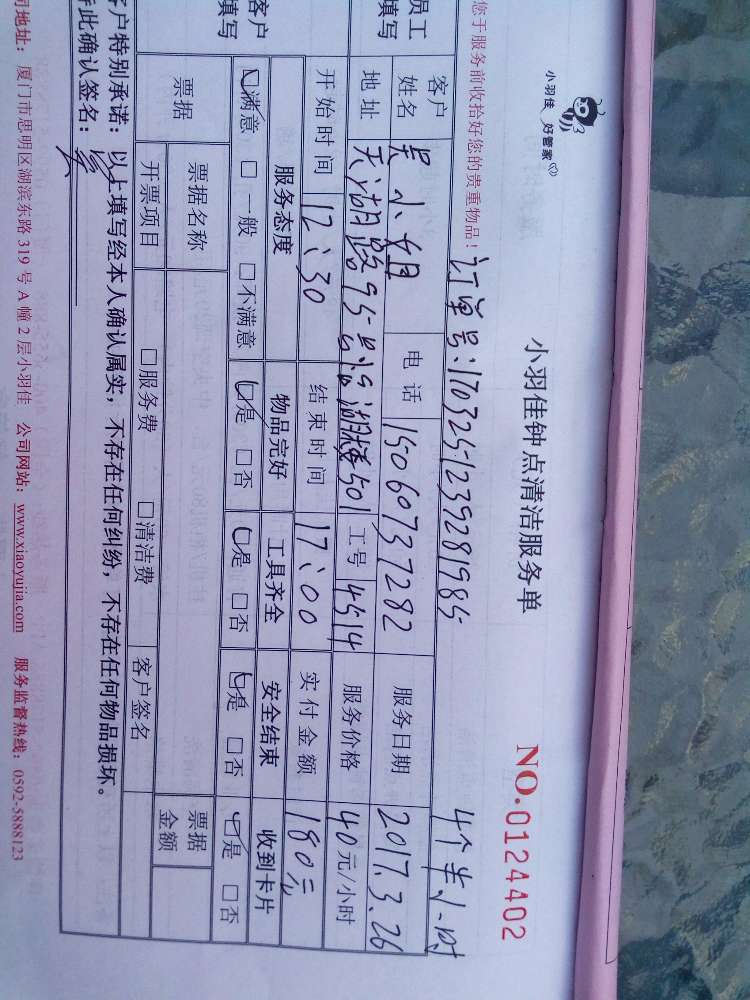 小羽佳 好管家
小羽佳钟点清洁服务单
NO.0124402
您于服务前收拾好您的贵重物品！ 订单号：1703251239281985 4个半小时
员工
填写
客户姓名 吴小姐 电话 15060737282 服务日期 2017.3.26
地址 天湖路95号 湖楼501 工号 4514 服务价格 40元/小时
开始时间 12:30 结束时间 17:00 实付金额 180元
客户
填写
服务态度 物品完好 工具齐全 安全结束 收到卡片
满意 □ 一般 □ 不满意 是 □ 否 是 □ 否 是 □ 否 是 □ 否
票据 票据名称 客户签名 票据金额
开票项目 □ 服务费 □ 清洁费
客户特别承诺：以上填写经本人确认属实，不存在任何纠纷，不存在任何物品损坏。
此确认签名：
地址：厦门市思明区湖滨东路 319 号 A 幢 2 层小羽佳 公司网站：www.xiaoyujia.com 服务监督热线：0592-5888123